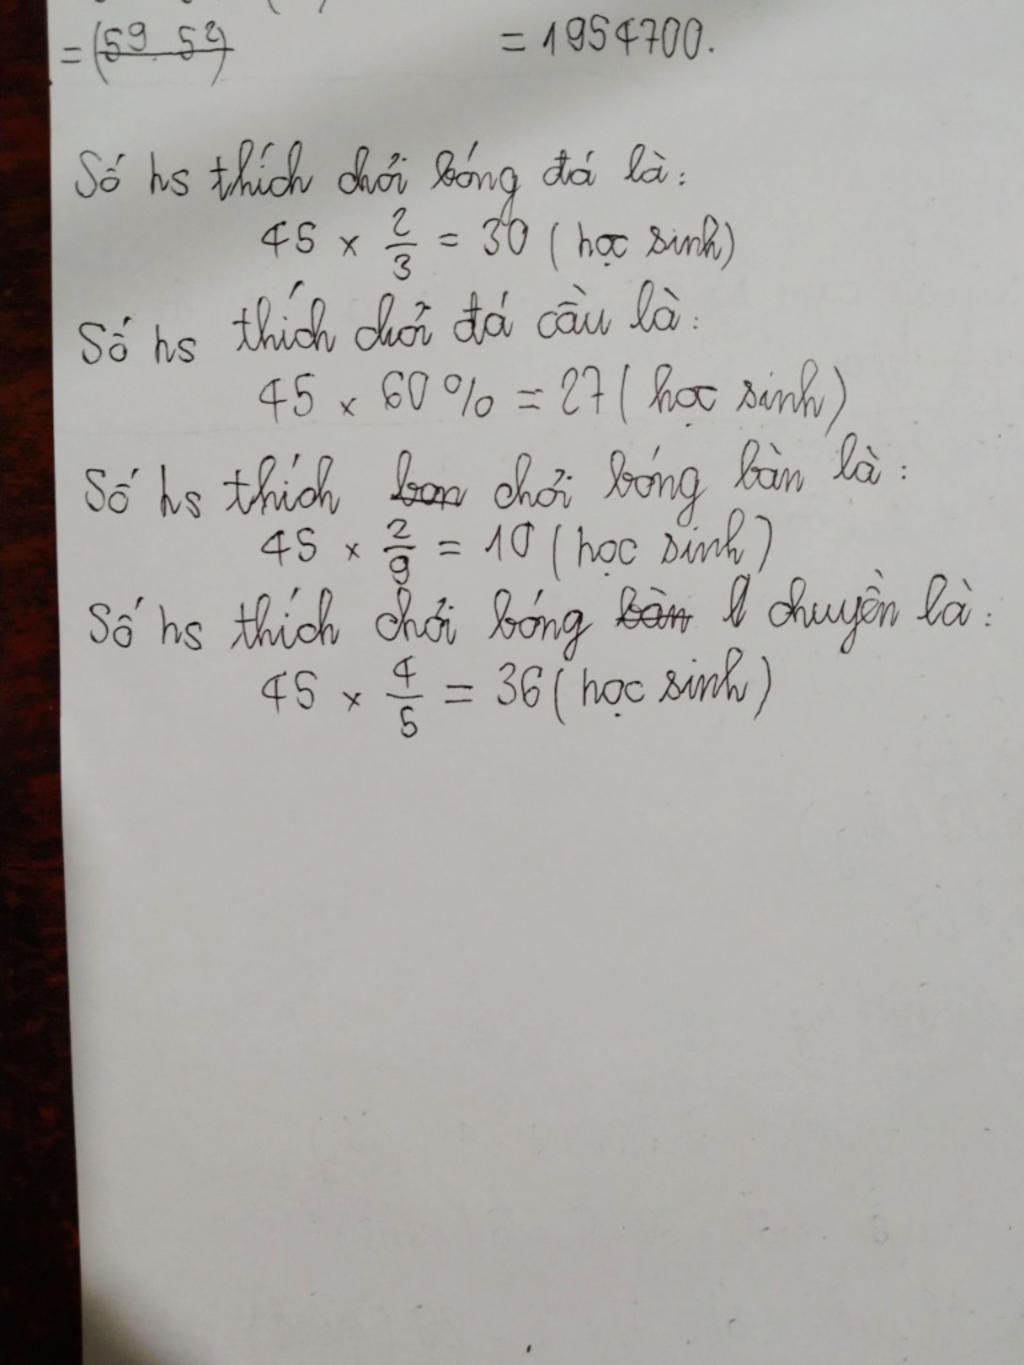 = (59 52) = 1954700.
Số hs thích chơi bóng đá là:
45 × 2/3 = 30 (học sinh)
Số hs thích chơi đá cầu là:
45 × 60% = 27 (học sinh)
Số hs thích bon chơi bóng bàn là:
45 × 2/9 = 10 (học sinh)
Số hs thích chơi bóng bàn l chuyền là:
45 × 4/5 = 36 (học sinh)